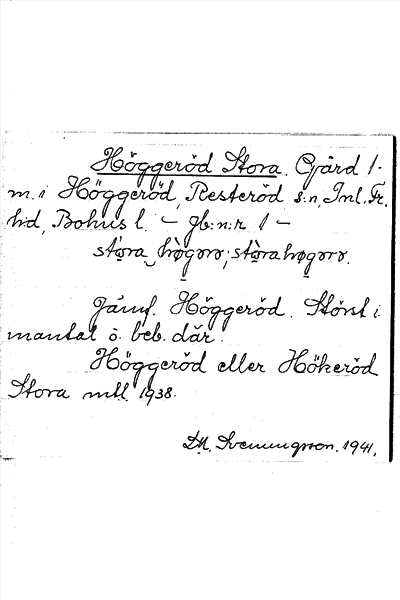 Höggeröd Stora. Gård 1.
m. i Höggeröd, Resteröd s:n, Inl. Fr.
h:d, Bohus l. – Jb:n:r 1 –
Jämf. Höggeröd. Störst i
mantal o. beb. där.
Höggeröd eller Hökeröd
Stora mtl. 1938.
D.M. Svenningsson. 1941.